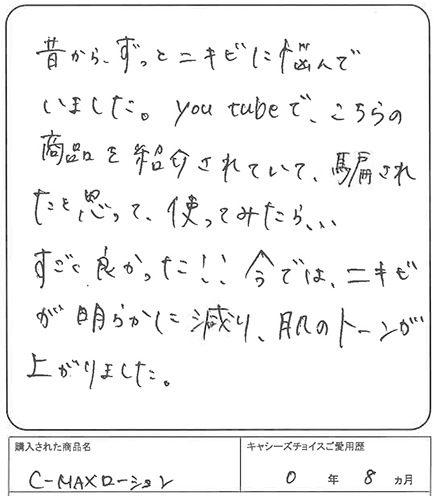 昔から、ずっとニキビに悩んで
いました。you tubeで、こちらの
商品を紹介されていて、騙され
たと思って、使ってみたら、、、
すごく良かった!! 今では、ニキビ
が明らかに減り、肌のトーンが
上がりました。
購入された商品名 キャシーズチョイスご愛用歴
C-MAXローション 0 年 8 ヵ月